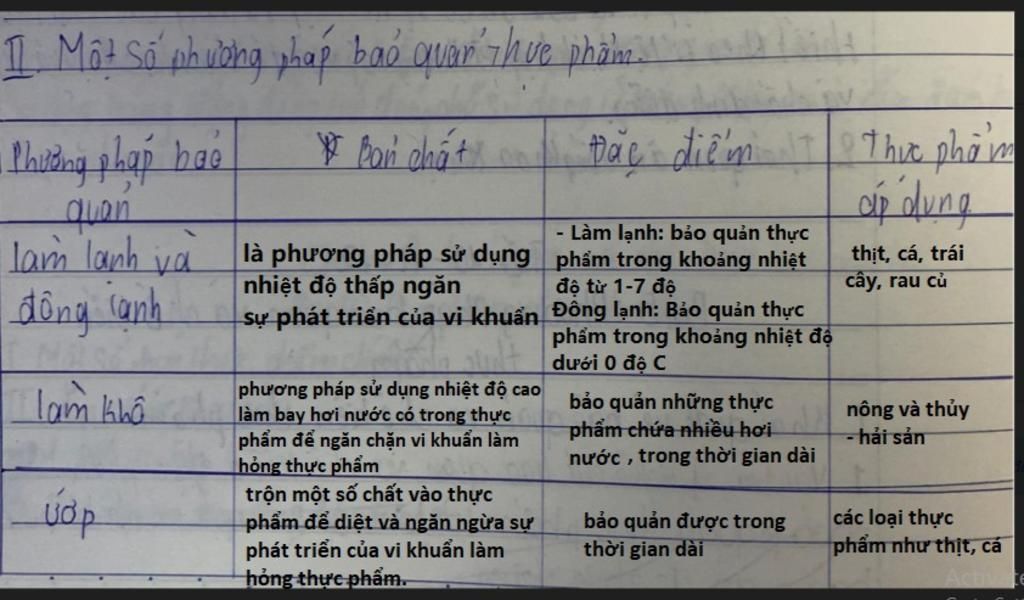 II. Một số phương pháp bảo quản thực phẩm.
Phương pháp bảo quản
Bản chất
Đặc điểm
Thực phẩm áp dụng
làm lạnh và đông lạnh
là phương pháp sử dụng
nhiệt độ thấp ngăn
sự phát triển của vi khuẩn
- Làm lạnh: bảo quản thực
phẩm trong khoảng nhiệt
độ từ 1-7 độ
Đông lạnh: Bảo quản thực
phẩm trong khoảng nhiệt độ
dưới 0 độ C
thịt, cá, trái
cây, rau củ
làm khô
phương pháp sử dụng nhiệt độ cao
làm bay hơi nước có trong thực
phẩm để ngăn chặn vi khuẩn làm
hỏng thực phẩm
bảo quản những thực
phẩm chứa nhiều hơi
nước , trong thời gian dài
nông và thủy
- hải sản
ướp
trộn một số chất vào thực
phẩm để diệt và ngăn ngừa sự
phát triển của vi khuẩn làm
hỏng thực phẩm.
bảo quản được trong
thời gian dài
các loại thực
phẩm như thịt, cá